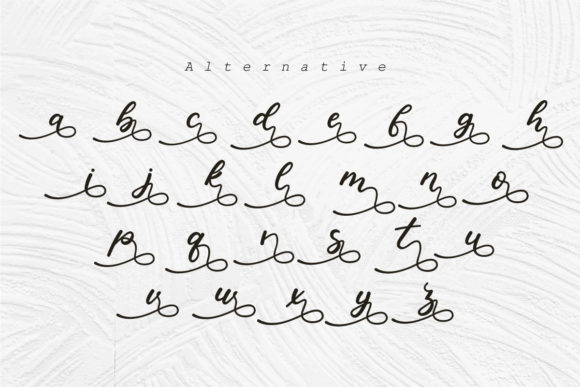 Alternative
a b c d e f g h
i j k l m n o
p q r s t u
v w x y z